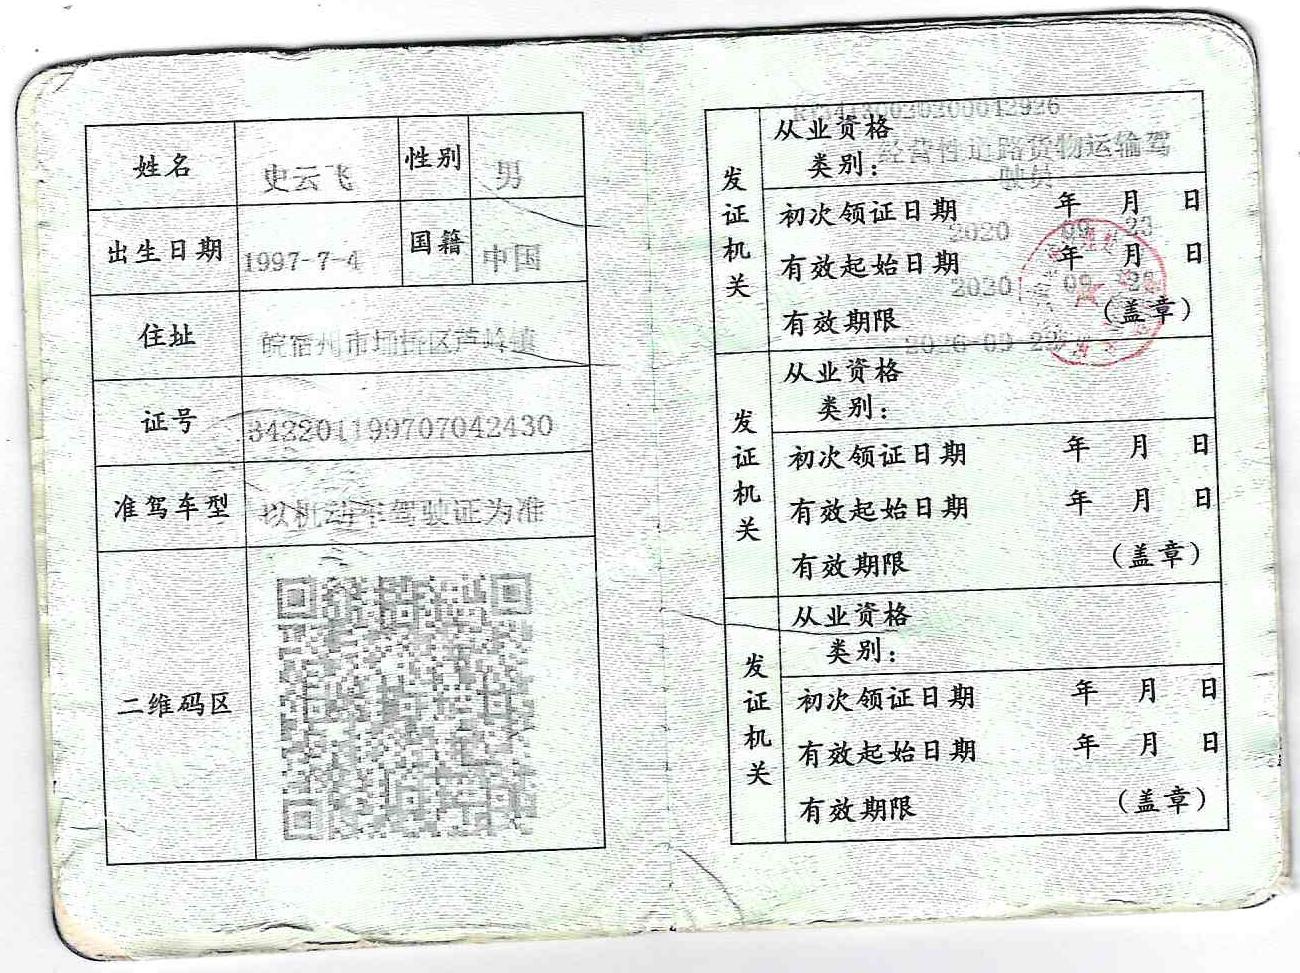 姓名 史云飞 性别 男
出生日期 1997-7-4 国籍 中国
住址 皖宿州市埇桥区芦岭镇
证号 342201199707042430
准驾车型 以机动车驾驶证为准
二维码区
发证机关
从业资格
类别：
经营性道路货物运输驾
驶员
初次领证日期 2020 年 09 月 23 日
有效起始日期 2020 年 09 月 23 日
有效期限 2026-09-22
（盖章）
发证机关
从业资格
类别：
初次领证日期 年 月 日
有效起始日期 年 月 日
有效期限 （盖章）
发证机关
从业资格
类别：
初次领证日期 年 月 日
有效起始日期 年 月 日
有效期限 （盖章）